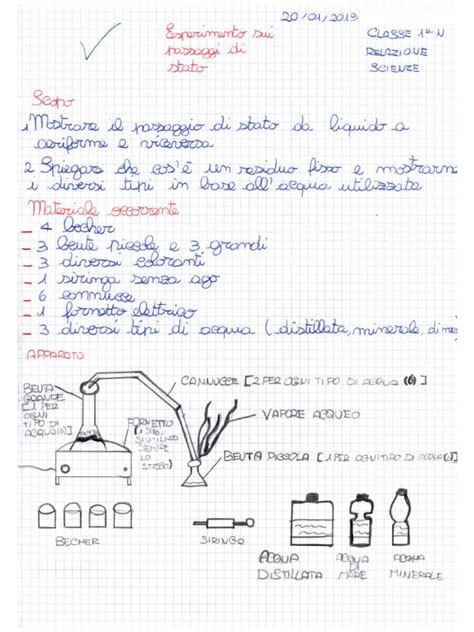 20/01/2019
Esperimento sui
passaggi di
stato
CLASSE 1ª N
RELAZIONE
SCIENZE
Scopo
1 Mostrare il passaggio di stato da liquido a
aeriforme e viceversa
2 Spiegare che cos'è un residuo fisso e mostrarne
i diversi tipi in base all'acqua utilizzata
Materiale occorrente
- 4 becher
- 3 beute piccole e 3 grandi
- 3 diversi coloranti
- 1 siringa senza ago
- 6 cannucce
- 1 fornetto elettrico
- 3 diversi tipi di acqua (distillata, minerale, di mare)
APPARATO
BEUTA
GRANDE
[1 PER
OGNI
TIPO DI
ACQUA
CANNUCCE [2 PER OGNI TIPO DI ACQUA (6)]
VAPORE ACQUEO
FORNETTO
SI UTILIZZA
SEMPRE
LO
STESSO
BEUTA PICCOLA [1 PER OGNI TIPO DI ACQUA
BECHER
SIRINGA
ACQUA
DISTILLATA
ACQUA
DI
MARE
ACQUA
MINERALE